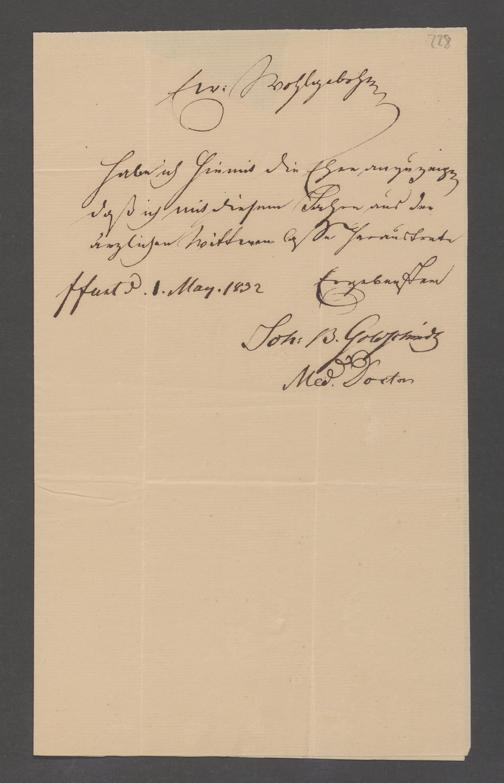 228
Ew: Wohlgebohrn
habe ich hiemit die Ehre anzuzeigen
daß ich mit diesem Jahre aus der
ärzlichen Wittwen Casse heraustrete
ffurt d. 1. May. 1832 Ergebenster
Joh: B. Goldschmidt
Med. Doctor